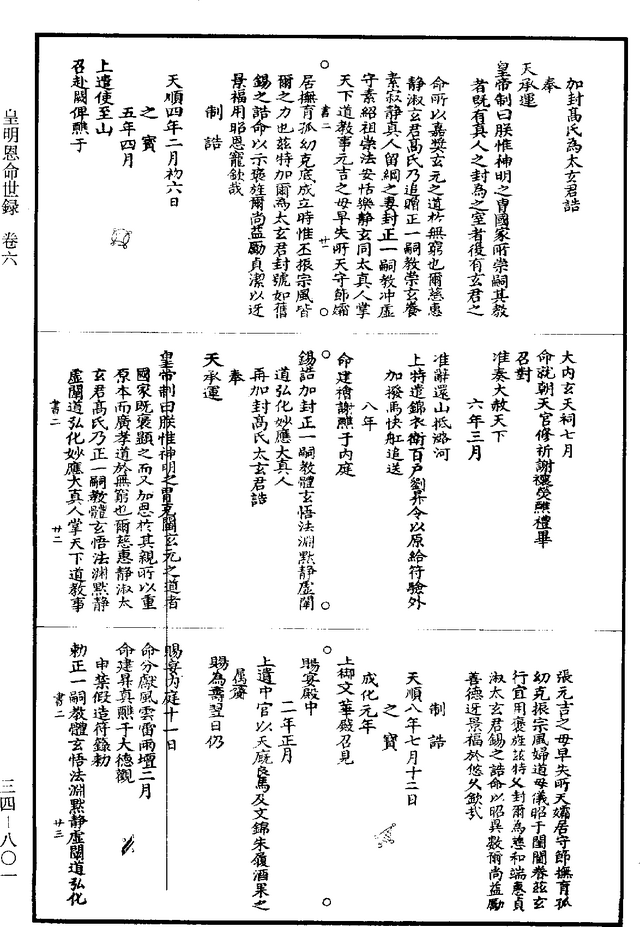 加封髙氏為太玄君誥
奉
天承運
皇帝制曰朕惟神明之胄國家所崇嗣其教
者既有真人之封為之室者復有玄君之
命所以嘉獎玄元之道於無窮也爾慈惠
靜淑玄君髙氏乃追贈正一嗣教崇玄養
素寂靜真人留綱之妻封正一嗣教冲虛
守素紹祖崇法安恬樂靜玄同大真人掌
天下道教事元吉之母早失所天守節孀
書二
廿一
居撫育孤幼克底成立時惟丕振宗風皆
爾之力也兹特加爾為太玄君封號如舊
錫之誥命以示褒旌爾尚益勵貞潔以迓
景福用昭恩寵欽哉
制誥
天順四年二月初六日
之寶
五年四月
上遣使至山
召赴闕俾醮于
大内玄天祠七月
命就朝天宫修祈謝禳熒醮禮畢
召對
准奏大赦天下
六年三月
准辭還山抵潞河
上特遣錦衣衛百户劉昇令以原給符驗外
加撥馬快舡追送
八年
命建禬謝醮于内庭
錫誥加封正一嗣教體玄悟法淵黙静虛闡
道弘化妙應大真人
再加封髙氏太玄君誥
奉
天承運
皇帝制曰朕惟神明之胄克闡玄元之道者
國家既褒顯之而又加恩於其親所以重
原本而廣孝道於無窮也爾慈惠静淑太
玄君髙氏乃正一嗣教體玄悟法淵黙静
虛闡道弘化妙應大真人掌天下道教事
書二
廿二
張元吉之母早失所天孀居守節撫育孤
幼克振宗風婦道母儀昭于閨閫眷兹玄
行宜用褒旌兹特封爾為慈和端惠貞
淑太玄君錫之誥命以昭異數爾尚益勵
善德迓景福於悠久欽哉
制誥
天順八年七月十二日
之寶
成化元年
上御文華殿召見
賜宴殿中
二年正月
上遣中官以天廐良馬及文錦朱履酒果之
屬賫
賜為壽翌日仍
賜宴内庭十一日
命分獻風雲雷雨壇二月
命建昇真醮于大德觀
申禁假造符籙勅
勅正一嗣教體玄悟法淵黙静虛闡道弘化
書二
廿三
皇明恩命世録 卷六
三四-八〇一